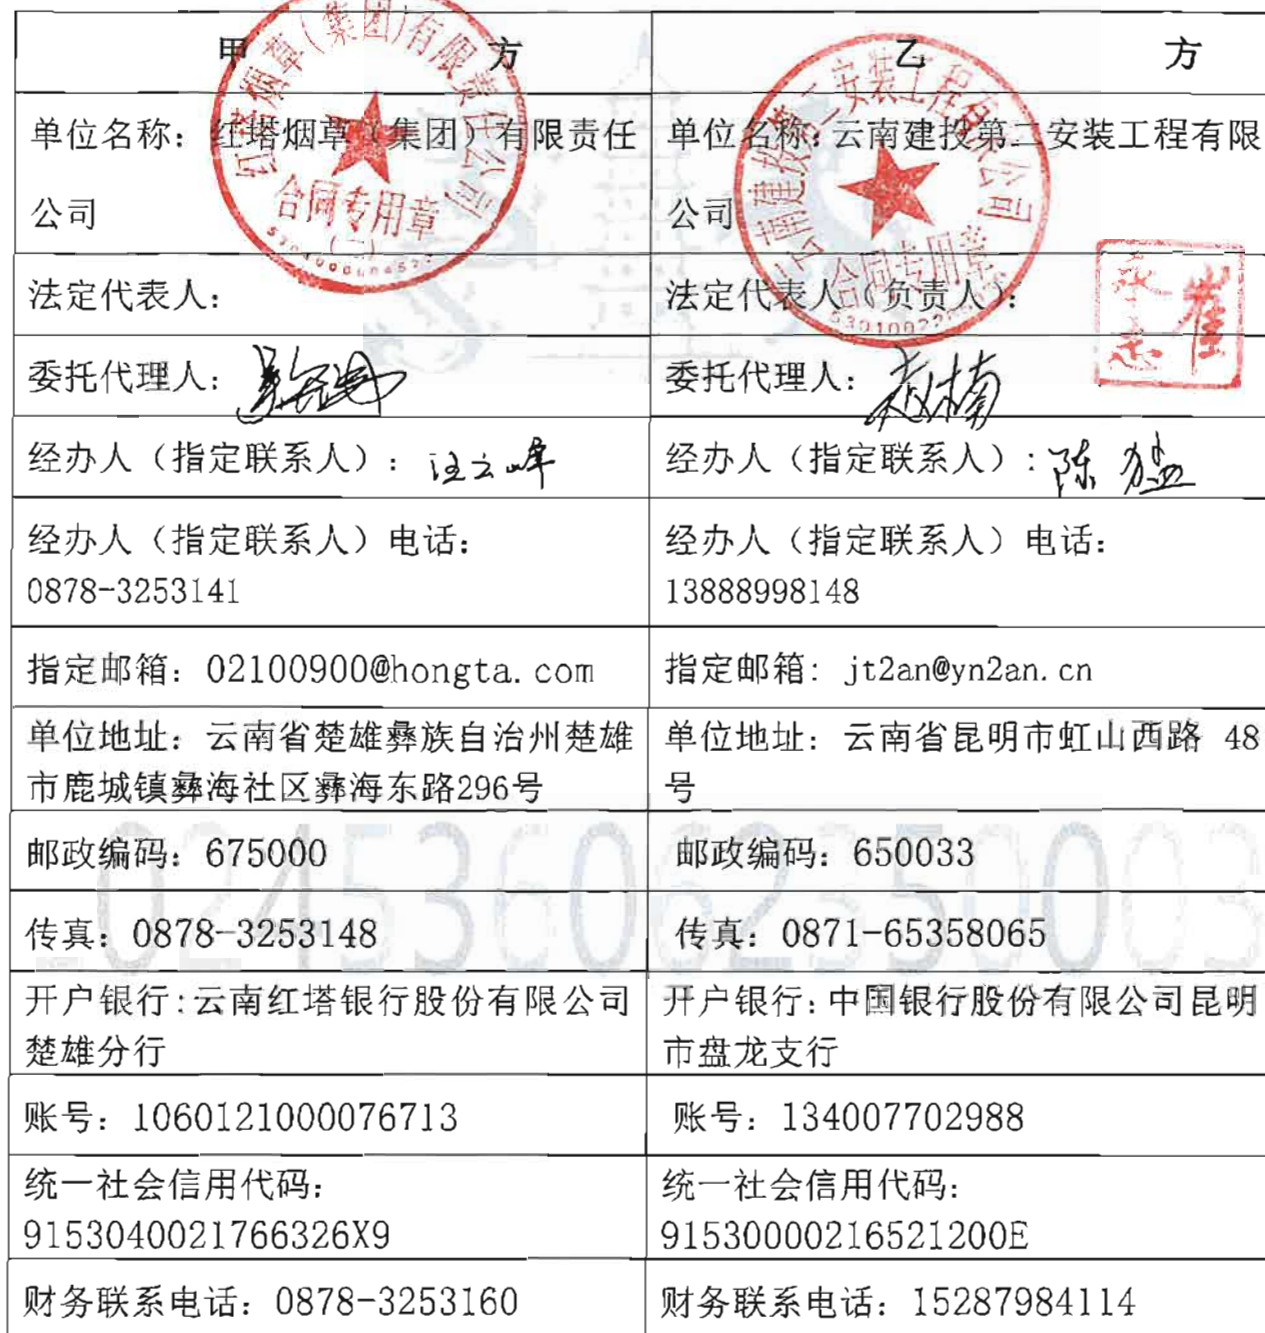 甲 方
乙 方
单位名称：红塔烟草（集团）有限责任
公司
单位名称：云南建投第二安装工程有限
公司
红塔烟草(集团)有限责任公司
合同专用章
云南建投第二安装工程有限公司
合同专用章
法定代表人：
法定代表人（负责人）：
崔
委托代理人：
委托代理人：
经办人（指定联系人）：汪云峰
经办人（指定联系人）：陈
经办人（指定联系人）电话：
0878-3253141
经办人（指定联系人）电话：
13888998148
指定邮箱：02100900@hongta.com
指定邮箱：jt2an@yn2an.cn
单位地址：云南省楚雄彝族自治州楚雄
市鹿城镇彝海社区彝海东路296号
单位地址：云南省昆明市虹山西路 48
号
邮政编码：675000
邮政编码：650033
传真：0878-3253148
传真：0871-65358065
开户银行：云南红塔银行股份有限公司
楚雄分行
开户银行：中国银行股份有限公司昆明
市盘龙支行
账号：1060121000076713
账号：134007702988
统一社会信用代码：
9153040021766326X9
统一社会信用代码：
91530000216521200E
财务联系电话：0878-3253160
财务联系电话：15287984114